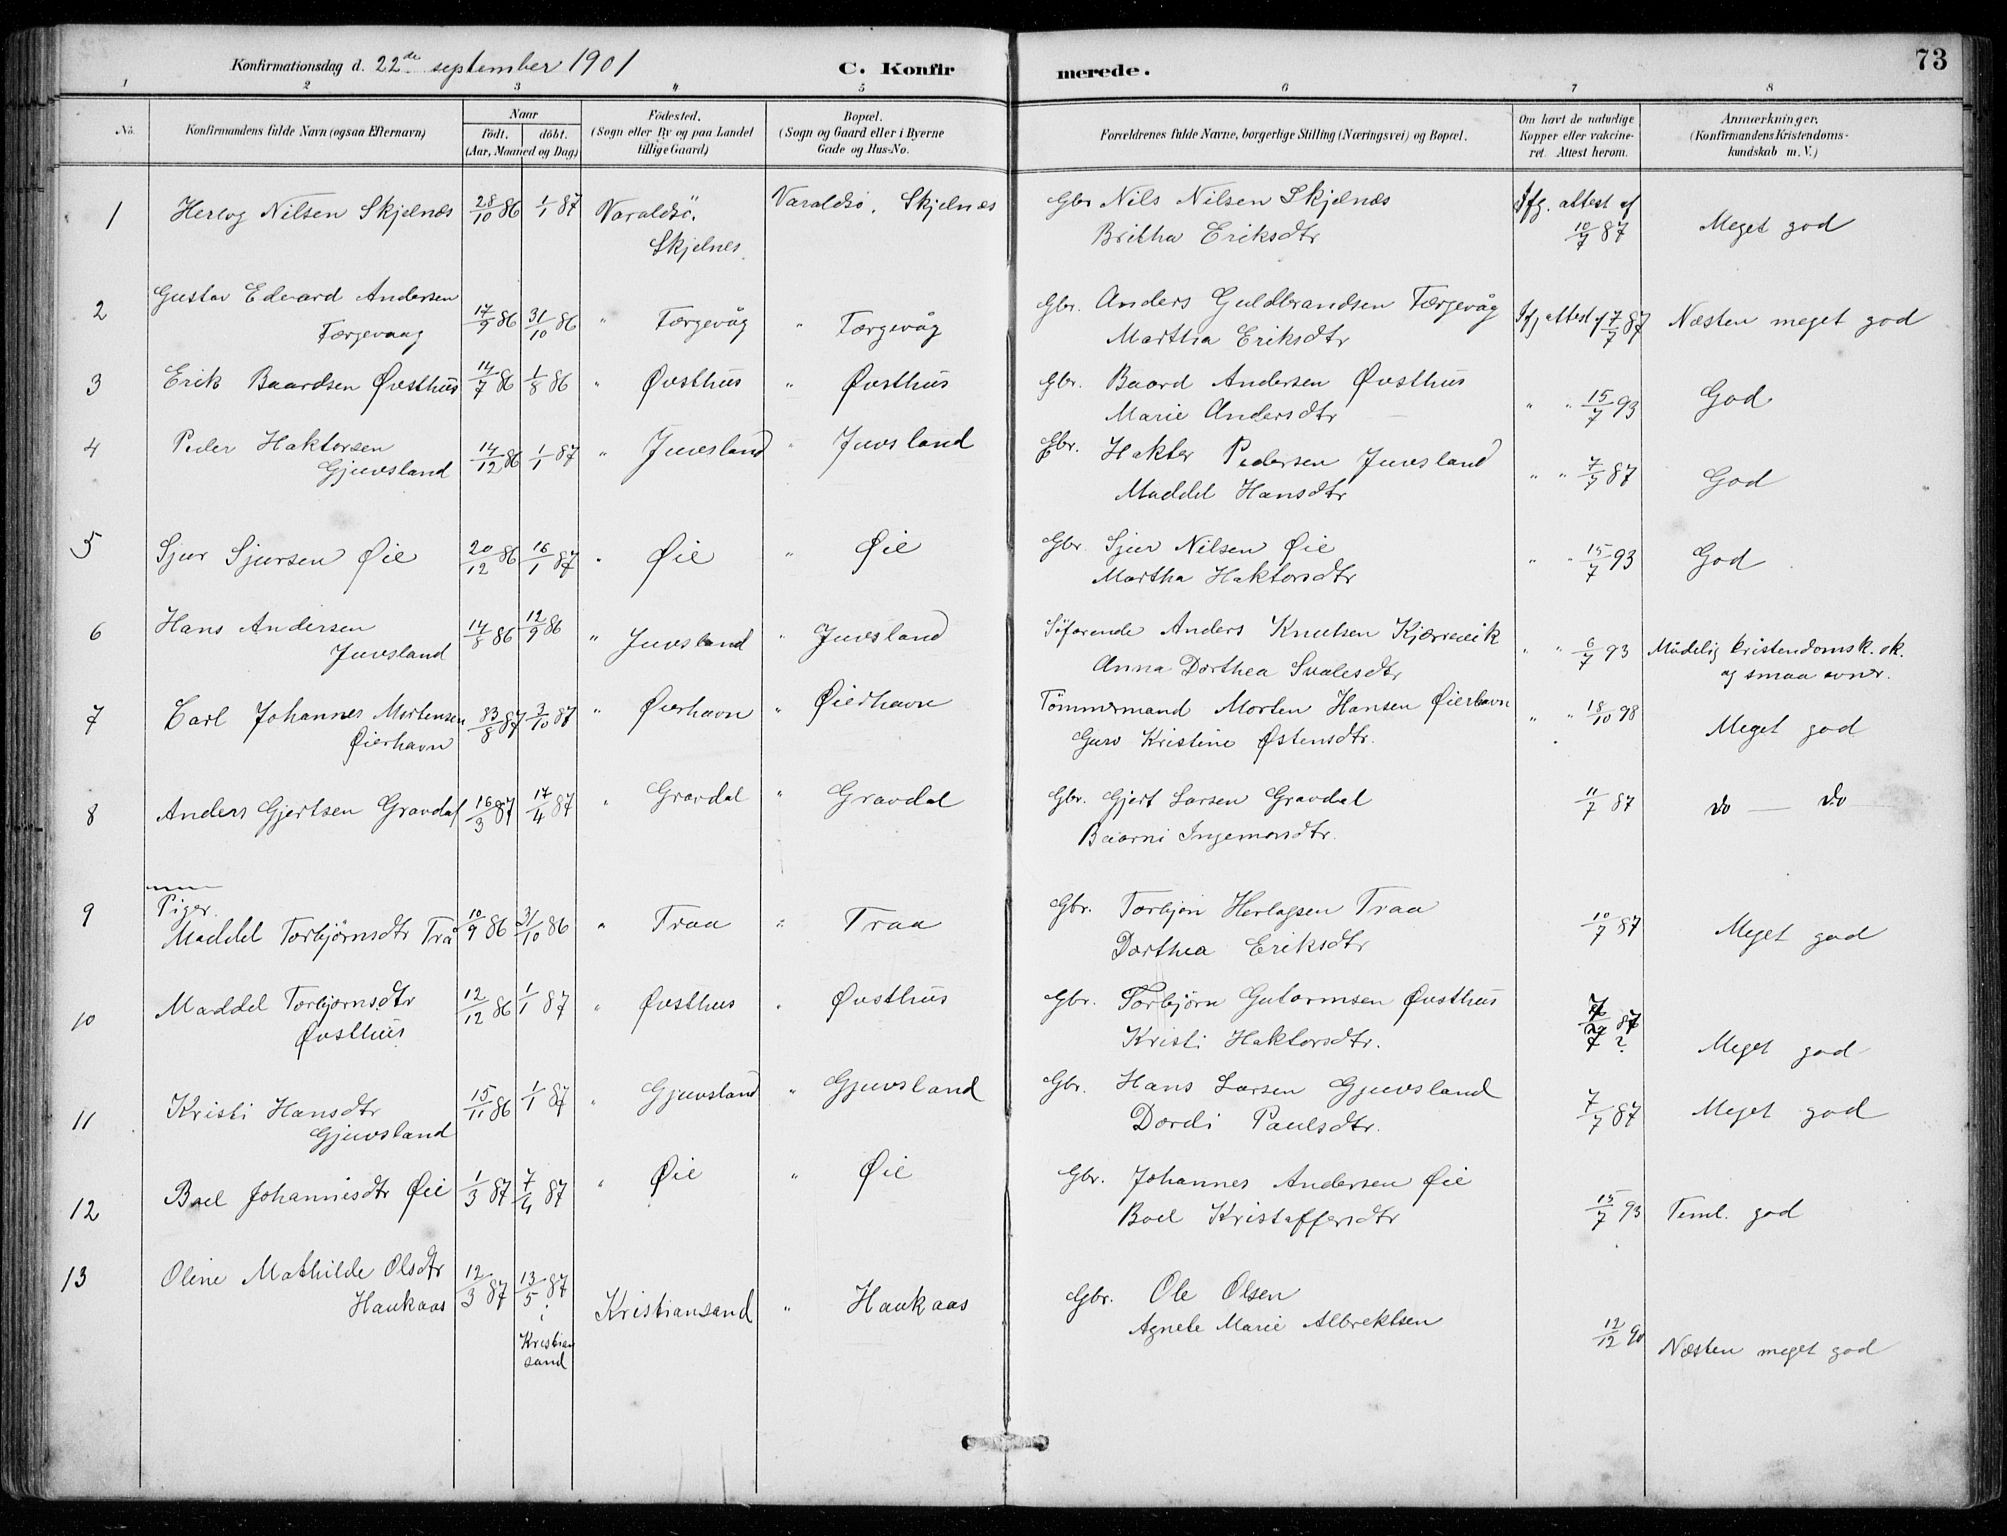 73
Konfirmationsdag d. 22de september 1901 C. Konfirmerede.
1 2 3 4 5 6 7 8
No. Konfirmandens fulde Navn (ogsaa Efternavn) Naar födt. döbt. (Aar, Maaned og Dag) Födested. (Sogn eller By og paa Landet tillige Gaard) Bopæl. (Sogn og Gaard eller i Byerne Gade og Hus-No. Forældrenes fulde Navne, borgerlige Stilling (Næringsvei) og Bopæl. Om havt de naturlige Kopper eller vakcineret. Attest herom. Anmærkninger. (Konfirmandens Kristendomskundskab m. V.)
1 Herlog Nilsen Skjelnæs 28/10 86 1/1 87 Varaldsö. Skjelnes Varaldsö. Skjelnæs Gbr Nils Nilsen Skjelnæs Ifg. attest af 10/7 87 Meget god
Britha Eriksdtr
2 Gustav Edvard Andersen 17/9 86 31/10 86 " Færgevåg " Færgevåg Gbr. Anders Guldbrandsen Færgevåg Ifg attest af 7/7 87 Næsten meget god
Færgevaag Martha Eriksdtr
3 Erik Baardsen Øvsthus 14/7 86 1/8 86 " Øvsthus " Øvsthus Gbr. Baard Andersen Øvsthus " " 15/7 93 God
Marie Andersdtr
4 Peder Haktorsen 14/12 86 1/1 87 " Juvsland " Juvsland Gbr. Hakter Pedersen Juvsland " " 7/7 87 God
Gjuvsland Maddel Hansdtr
5 Sjur Sjursen Øie 20/12 86 16/1 87 " Øie " Øie Gbr Sjur Nilsen Øie " " 15/7 93 God
Martha Haktorsdtr
6 Hans Andersen 14/8 86 12/9 86 " Juvsland " Juvsland Söfarende Anders Knutsen Kjærevik " " 6/7 93 Mådelig kristendomsk. ok.
Juvsland Anna Dorthea Svalesdtr og smaa evner.
7 Carl Johannes Mortensen 23/8 87 3/10 87 " Øierhavn " Øierhavn Tömmermand Morten Hansen Øierhavn " " 18/10 98 Meget god
Øierhavn Guro Kristine Østensdtr.
8 Anders Gjertsen Gravdal 16/3 87 17/4 87 " Gravdal " Gravdal Gbr. Gjert Larsen Gravdal 11/7 87 do — do
Baarni Ingemarsdtr.
Piger.
9 Maddel Torbjørnsdtr Traa 10/9 86 31/10 86 " Traa " Traa Gbr. Torbjon Herlogsen Traa 10/7 87 Meget god
Dorthea Eriksdtr
10 Maddel Torbjørnsdtr 12/12 86 1/1 87 " Øvsthus " Øvsthus Gbr. Torbjörn Gutormsen Øvsthus 7/7 87 ? Meget god
Øvsthus Kristi Haktorsdtr.
11 Kristi Hansdtr 15/11 86 1/1 87 " Gjuvsland " Gjuvsland Gbr. Hans Larsen Gjuvsland 7/7 87 Meget god
Gjuvsland Dordi Paulsdtr.
12 Boel Johannesdtr Øie 1/3 87 7/4 87 " Øie " Øie Gbr. Johannes Andersen Øie 15/7 93 Teml. god
Boel Kristaffersdtr
13 Oline Mathilde Olsdtr 12/3 87 13/5 87 i Kristiansand Kristiansand " Haukaas Gbr. Ole Olsen 12/12 90 Næsten meget god
Haukaas Agnete Marie Albrektsen